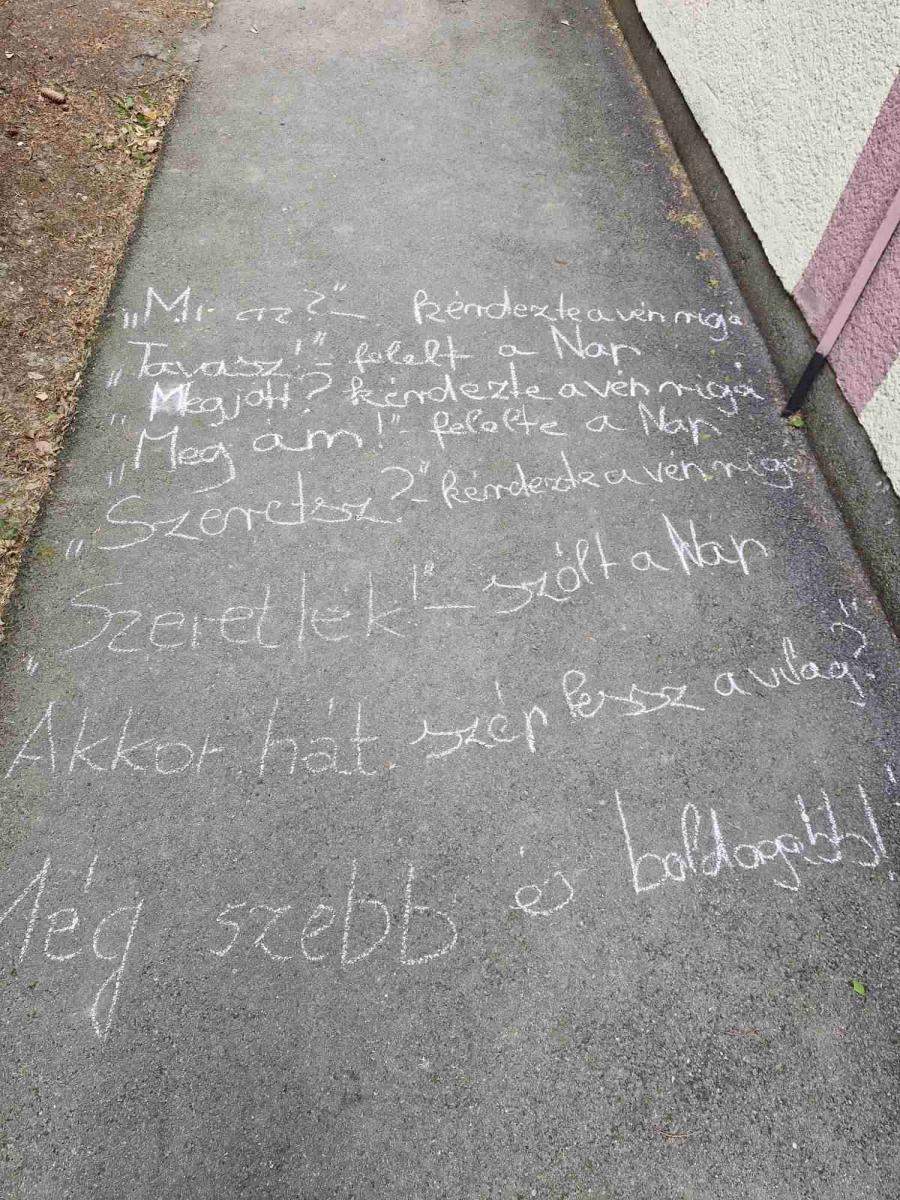 „Mi az?" - kérdezte a vén rigó
„Tavasz!" - felelt a Nap
„Megjött? kérdezte a vén rigó
„Meg ám!" - felelte a Nap
„Szeretsz?" - kérdezte a vén rigó
„Szeretlek!" - szólt a Nap
„Akkor hát szép lessz a világ?"
Még szebb és boldogabb!